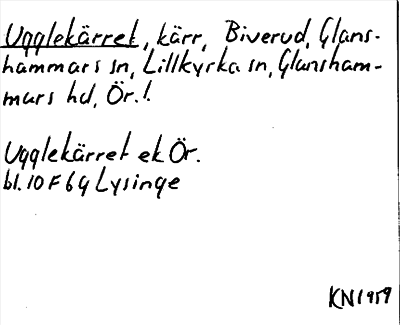 Ugglekärret, kärr, Biverud, Glans-
hammars sn, Lillkyrka sn, Glansham-
mars hd, Ör.l.
Ugglekärret ek Ör.
bl. 10 F 6 g Lysinge
KN 1959